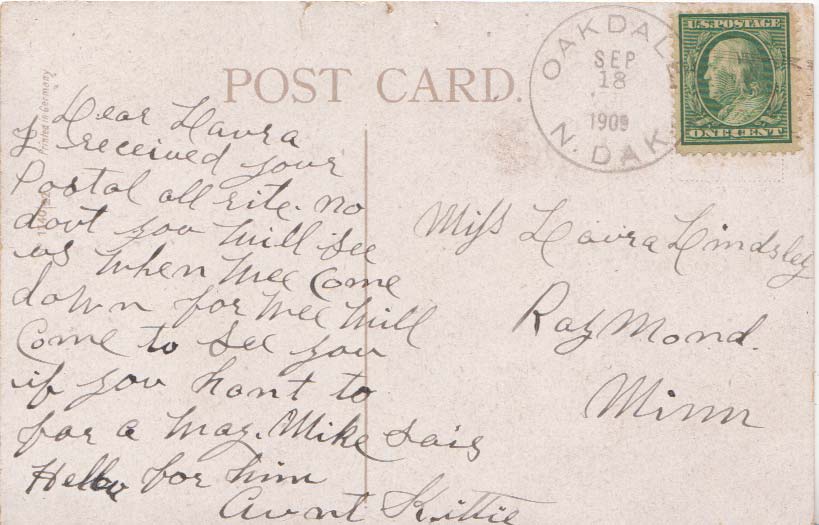 POST CARD.
OAKDALE
SEP
18
1909
N. DAK.
U.S. POSTAGE
ONE CENT
Printed in Germany
Dear Laura
I received your
Postal all rite. no
dout you will see
us when wee come
down for wee will
Come to see you
if you hant to
far a way. Mike sais
Hello for him
Aunt Kittie
Miss Laura Lindsley
Raymond.
Minn